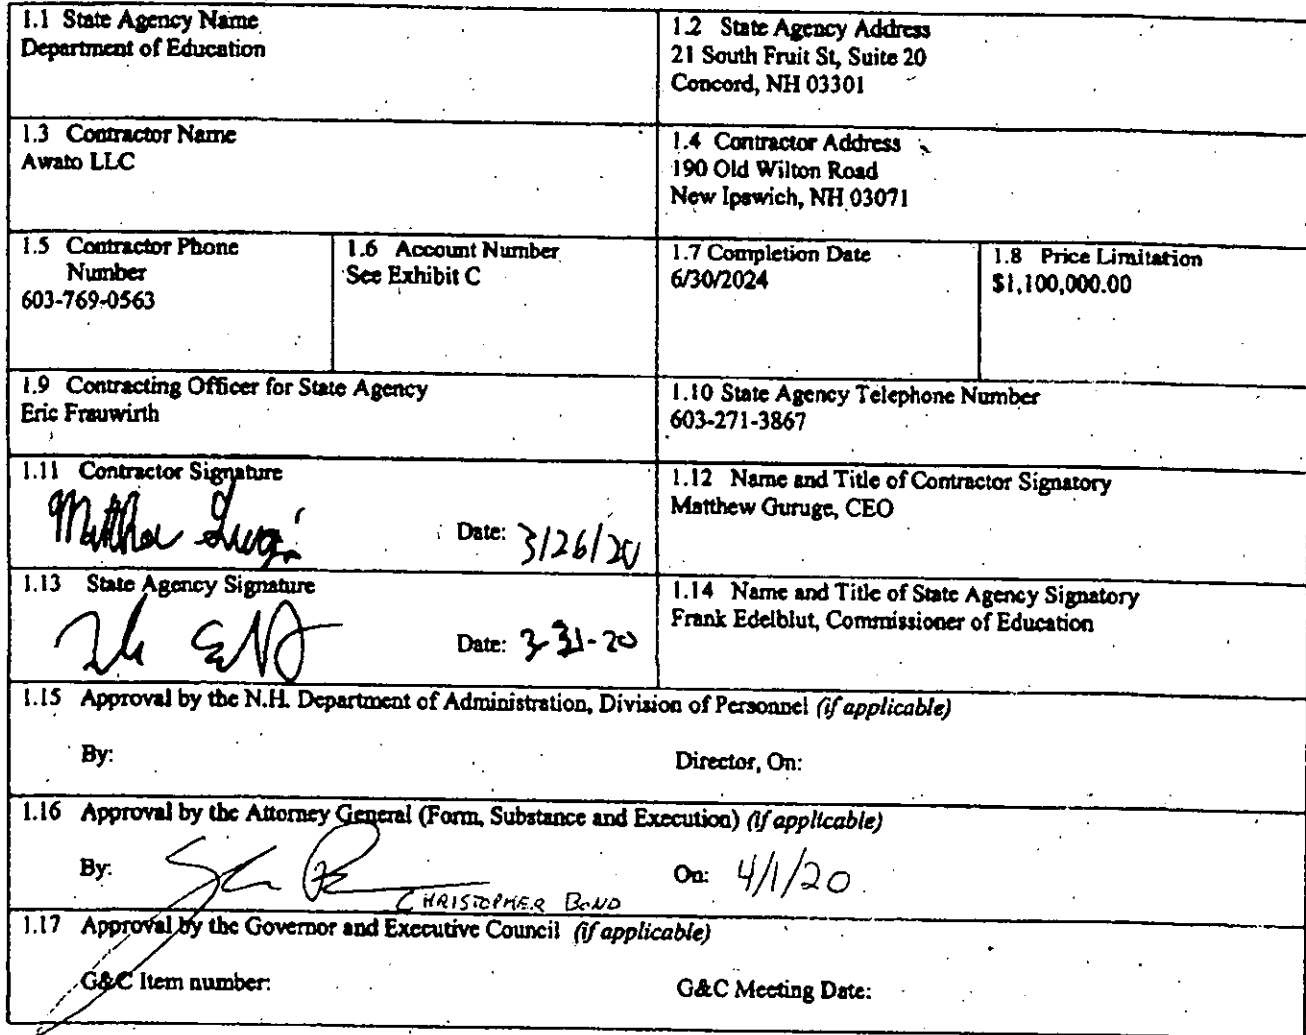 1.1 State Agency Name
Department of Education
1.2 State Agency Address
21 South Fruit St, Suite 20
Concord, NH 03301
1.3 Contractor Name
Awato LLC
1.4 Contractor Address
190 Old Wilton Road
New Ipswich, NH 03071
1.5 Contractor Phone
Number
603-769-0563
1.6 Account Number
See Exhibit C
1.7 Completion Date
6/30/2024
1.8 Price Limitation
$1,100,000.00
1.9 Contracting Officer for State Agency
Eric Frauwirth
1.10 State Agency Telephone Number
603-271-3867
1.11 Contractor Signature
Date: 3/26/20
1.12 Name and Title of Contractor Signatory
Matthew Guruge, CEO
1.13 State Agency Signature
Date: 3-31-20
1.14 Name and Title of State Agency Signatory
Frank Edelblut, Commissioner of Education
1.15 Approval by the N.H. Department of Administration, Division of Personnel (if applicable)
By: Director, On:
1.16 Approval by the Attorney General (Form, Substance and Execution) (if applicable)
By: On: 4/1/20
CHRISTOPHER BOND
1.17 Approval by the Governor and Executive Council (if applicable)
G&C Item number: G&C Meeting Date: